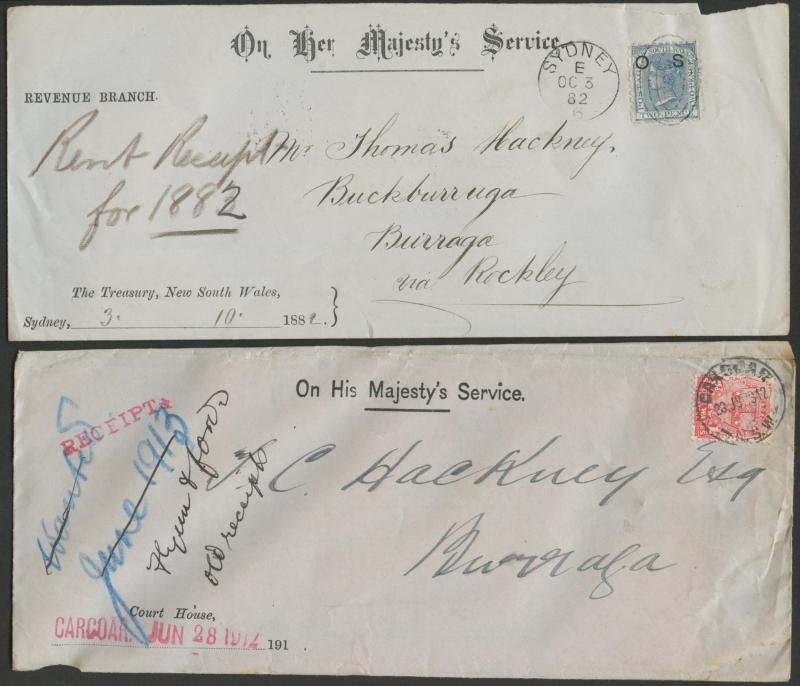 On Her Majesty's Service
SYDNEY
E
OC 3
82
6
O S
TWO PENCE
REVENUE BRANCH.
Rent Receipt
for 1882
Mr. Thomas Hackney,
Buckburruga
Burraga
via Rockley
The Treasury, New South Wales,
Sydney, 3. 10. 1882.
On His Majesty's Service.
CARCOAR
N.S.W
RECEIPTS
June 1913
old receipts
C. Hackney Esq
Burraga
Court House,
CARCOAR. JUN 28 1912 191 .